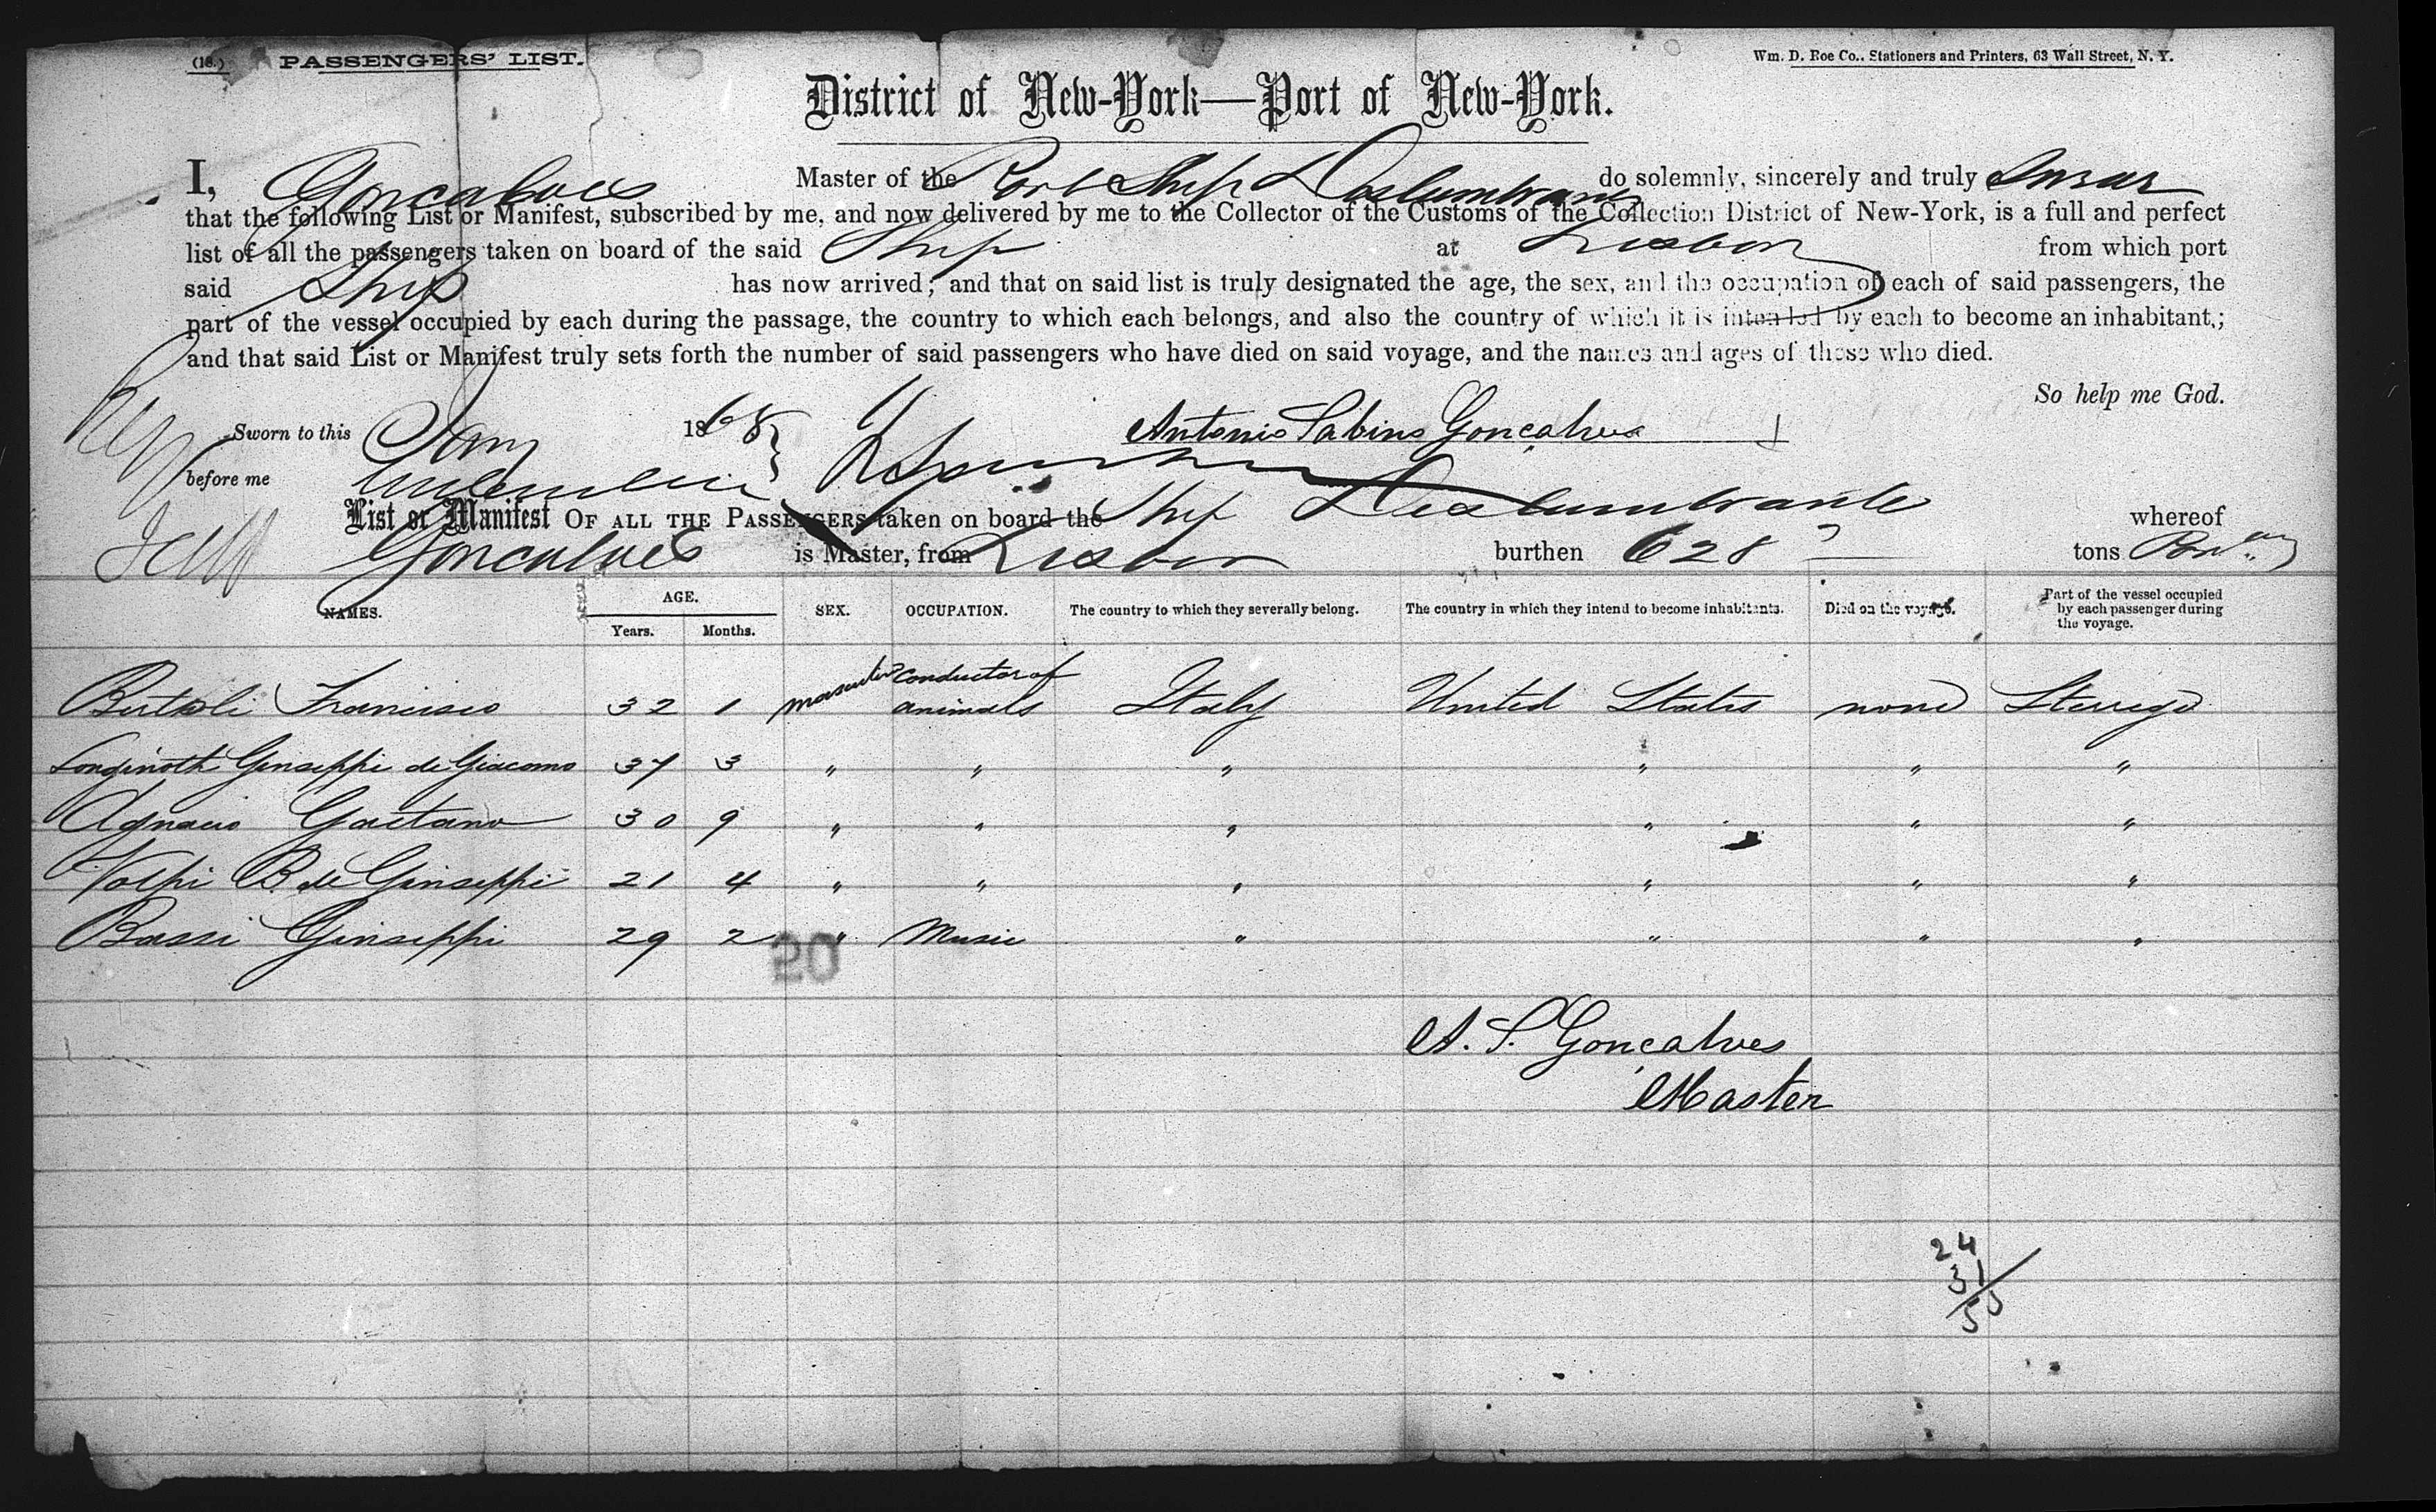 (18.) PASSENGERS' LIST.
Wm. D. Roe Co., Stationers and Printers, 63 Wall Street, N. Y.
District of New-York—Port of New-York.
I, Goncalves Master of the Port Ship Deslumbrante do solemnly, sincerely and truly Swear
that the following List or Manifest, subscribed by me, and now delivered by me to the Collector of the Customs of the Collection District of New-York, is a full and perfect
list of all the passengers taken on board of the said Ship at Lisbon from which port
said Ship has now arrived; and that on said list is truly designated the age, the sex, and the occupation of each of said passengers, the
part of the vessel occupied by each during the passage, the country to which each belongs, and also the country of which it is intended by each to become an inhabitant;
and that said List or Manifest truly sets forth the number of said passengers who have died on said voyage, and the names and ages of those who died.
So help me God.
Sworn to this Jany 1868 Antonio Sabino Goncalves
before me
List or Manifest OF ALL THE PASSENGERS taken on board the Ship Deslumbrante whereof
Goncalves is Master, from Lisbon burthen 628 tons
NAMES. AGE. Years. Months. SEX. OCCUPATION. The country to which they severally belong. The country in which they intend to become inhabitants. Died on the voyage. Part of the vessel occupied by each passenger during the voyage.
Bertoli Francisco 32 1 masculine conductor of animals Italy United States none Sterige
Longinoth Ginseppi de Giacomo 37 3 " " " " " "
Agnacio Gaetano 30 9 " " " " " "
Volpi B. de Ginseppi 21 4 " " " " " "
Bassi Ginseppi 29 2 " Music " " " "
20
A. S. Goncalves
Master
24
31
55